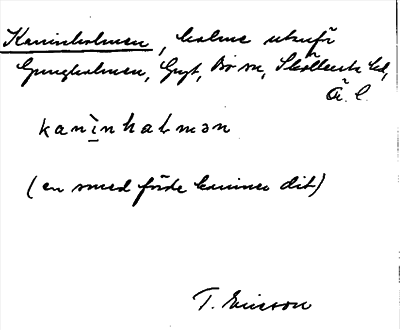 Kaninholmen, holme utanför
Gungholmen, Gryt, Bo sn, Sköllersta hd,
Ä. l.
kanìnhalmən
(en smed förde kaniner dit)
T. Ericson